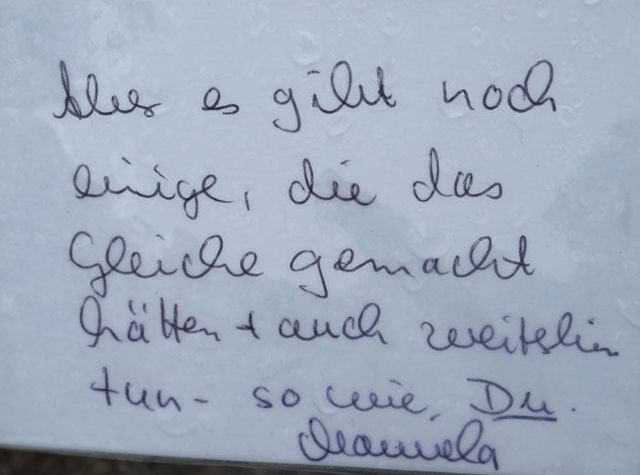 Aber es gibt noch
einige, die das
Gleiche gemacht
hätten + auch weiterhin
tun - so wie, Du.
Manuela